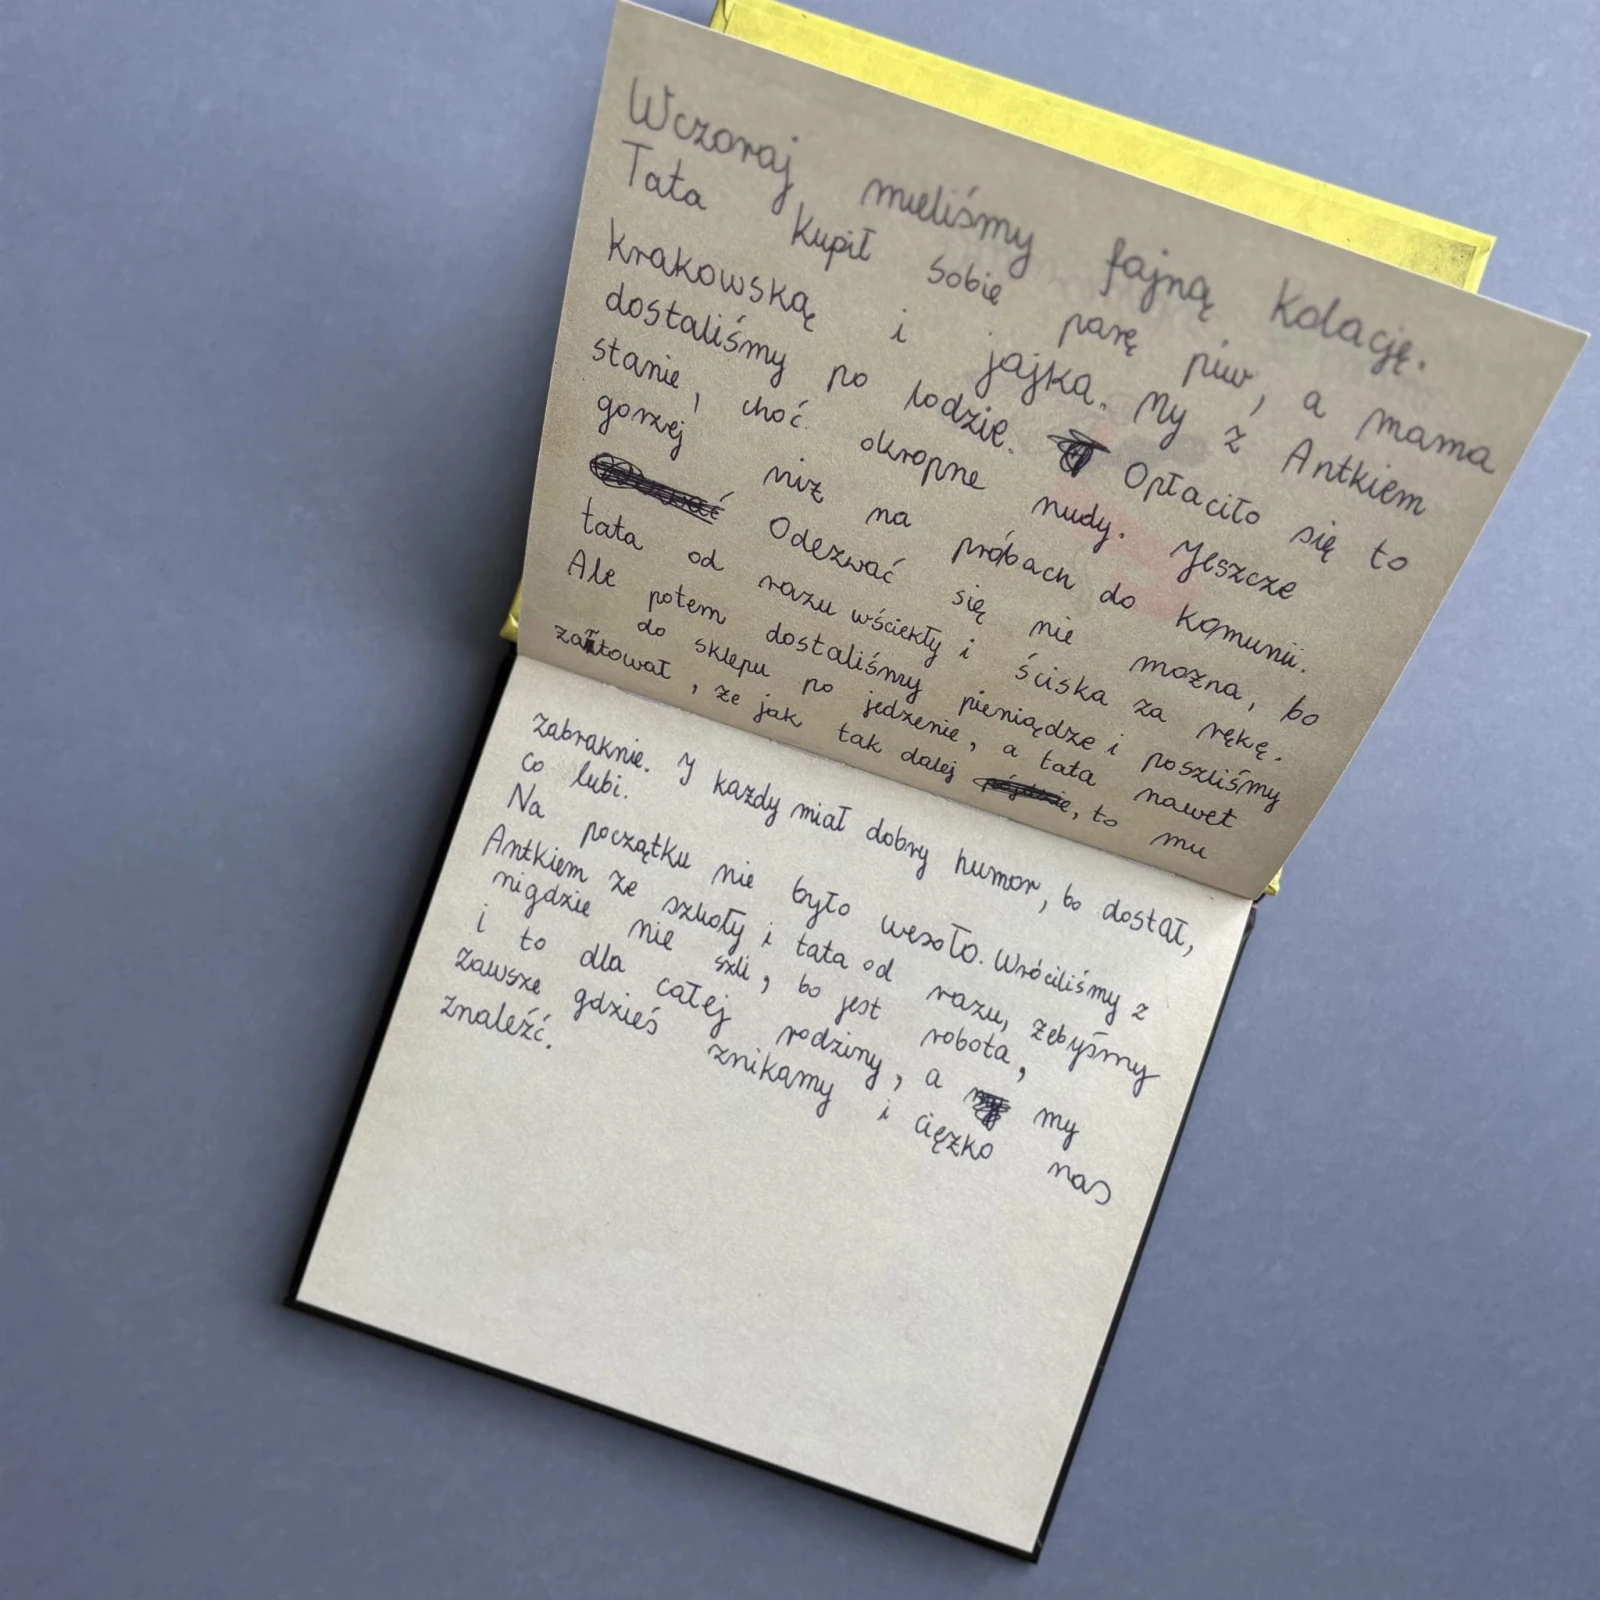 Wczoraj mieliśmy fajną kolację.
Tata kupił sobie parę piw, a mama
krakowską i jajka. My z Antkiem
dostaliśmy po lodzie. Opłaciło się to
stanie, choć okropne nudy. Jeszcze
gorzej niż na próbach do komunii.
Odezwać się nie można, bo
tata od razu wściekły i ściska za rękę.
Ale potem dostaliśmy pieniądze i poszliśmy
do sklepu po jedzenie, a tata nawet
żartował, że jak tak dalej pójdzie, to mu
zabraknie. I każdy miał dobry humor, bo dostał,
co lubi.
Na początku nie było wesoło. Wróciliśmy z
Antkiem ze szkoły i tata od razu, żebyśmy
nigdzie nie szli, bo jest robota,
i to dla całej rodziny, a my
zawsze gdzieś znikamy i ciężko nas
znaleźć.